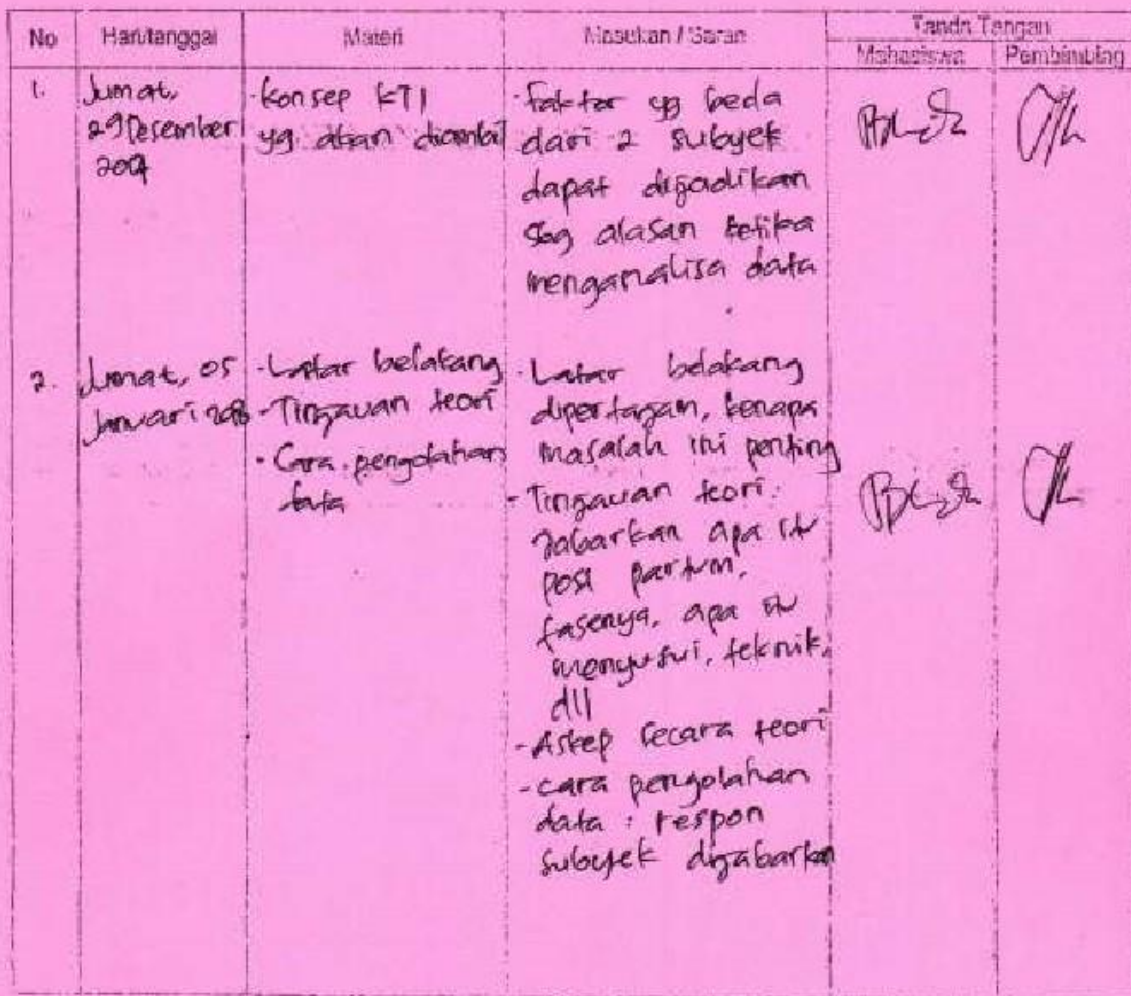 No Hari/tanggal Materi Masukan / Saran Tanda Tangan
Mahasiswa Pembimbing
1. Jumat,
29 Desember
2017
- Konsep KTI
yg akan diambil
- faktor yg beda
dari 2 subyek
dapat dijadikan
sbg alasan ketika
menganalisa data
2. Jumat, 05
Januari 2018
- Latar belakang
- Tinjauan teori
- Cara pengolahan
data
- Latar belakang
dipertajam, kenapa
masalah ini penting
- Tinjauan teori:
Jabarkan apa itu
post partum,
fasenya, apa itu
menyusui, teknik,
dll
- Askep secara teori
- cara pengolahan
data : respon
subyek dijabarkan